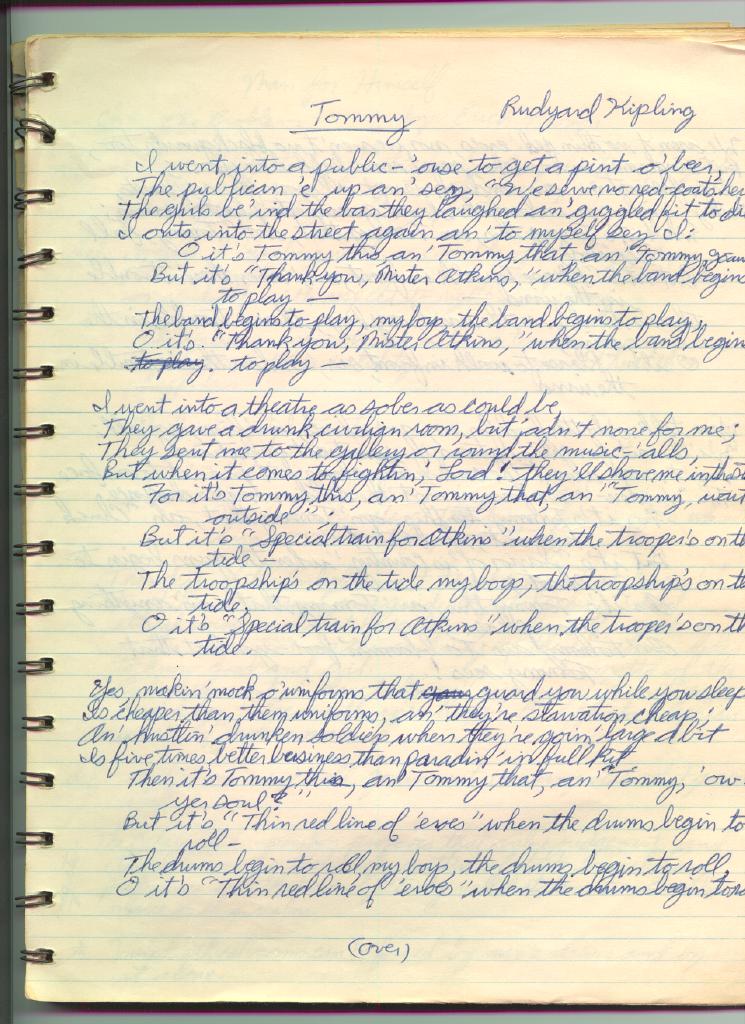 Tommy Rudyard Kipling
I went into a public-'ouse to get a pint o' beer,
The publican 'e up an' sez, "We serve no red-coats her
The girls be'ind the bar they laughed an' giggled fit to di
I outs into the street again an' to myself sez I:
O it's Tommy this an' Tommy that, an' Tommy,
But it's "Thank you, Mister Atkins," when the band begins
to play —
The band begins to play, my boys, the band begins to play,
O it's "Thank you, Mister Atkins," when the band begin
to play. to play —
I went into a theatre as sober as could be,
They gave a drunk civilian room, but 'adn't none for me;
They sent me to the gallery or round the music-'alls,
But when it comes to fightin', Lord! they'll shove me in the
For it's Tommy this, an' Tommy that, an' "Tommy, wait
outside";
But it's "Special train for Atkins" when the trooper's on th
tide —
The troopship's on the tide my boys, the troopship's on t
tide,
O it's "Special train for Atkins" when the trooper's on th
tide.
Yes, makin' mock o' uniforms that guard you while you sleep
Is cheaper than them uniforms, an' they're starvation cheap;
An' hustlin' drunken soldiers when they're goin' large a bit
Is five times better business than paradin' in full kit
Then it's Tommy this, an' Tommy that, an' "Tommy, 'ow
yer soul?"
But it's "Thin red line of 'eroes" when the drums begin to
roll —
The drums begin to roll, my boys, the drums begin to roll,
O it's "Thin red line of 'eroes" when the drums begin to
(over)